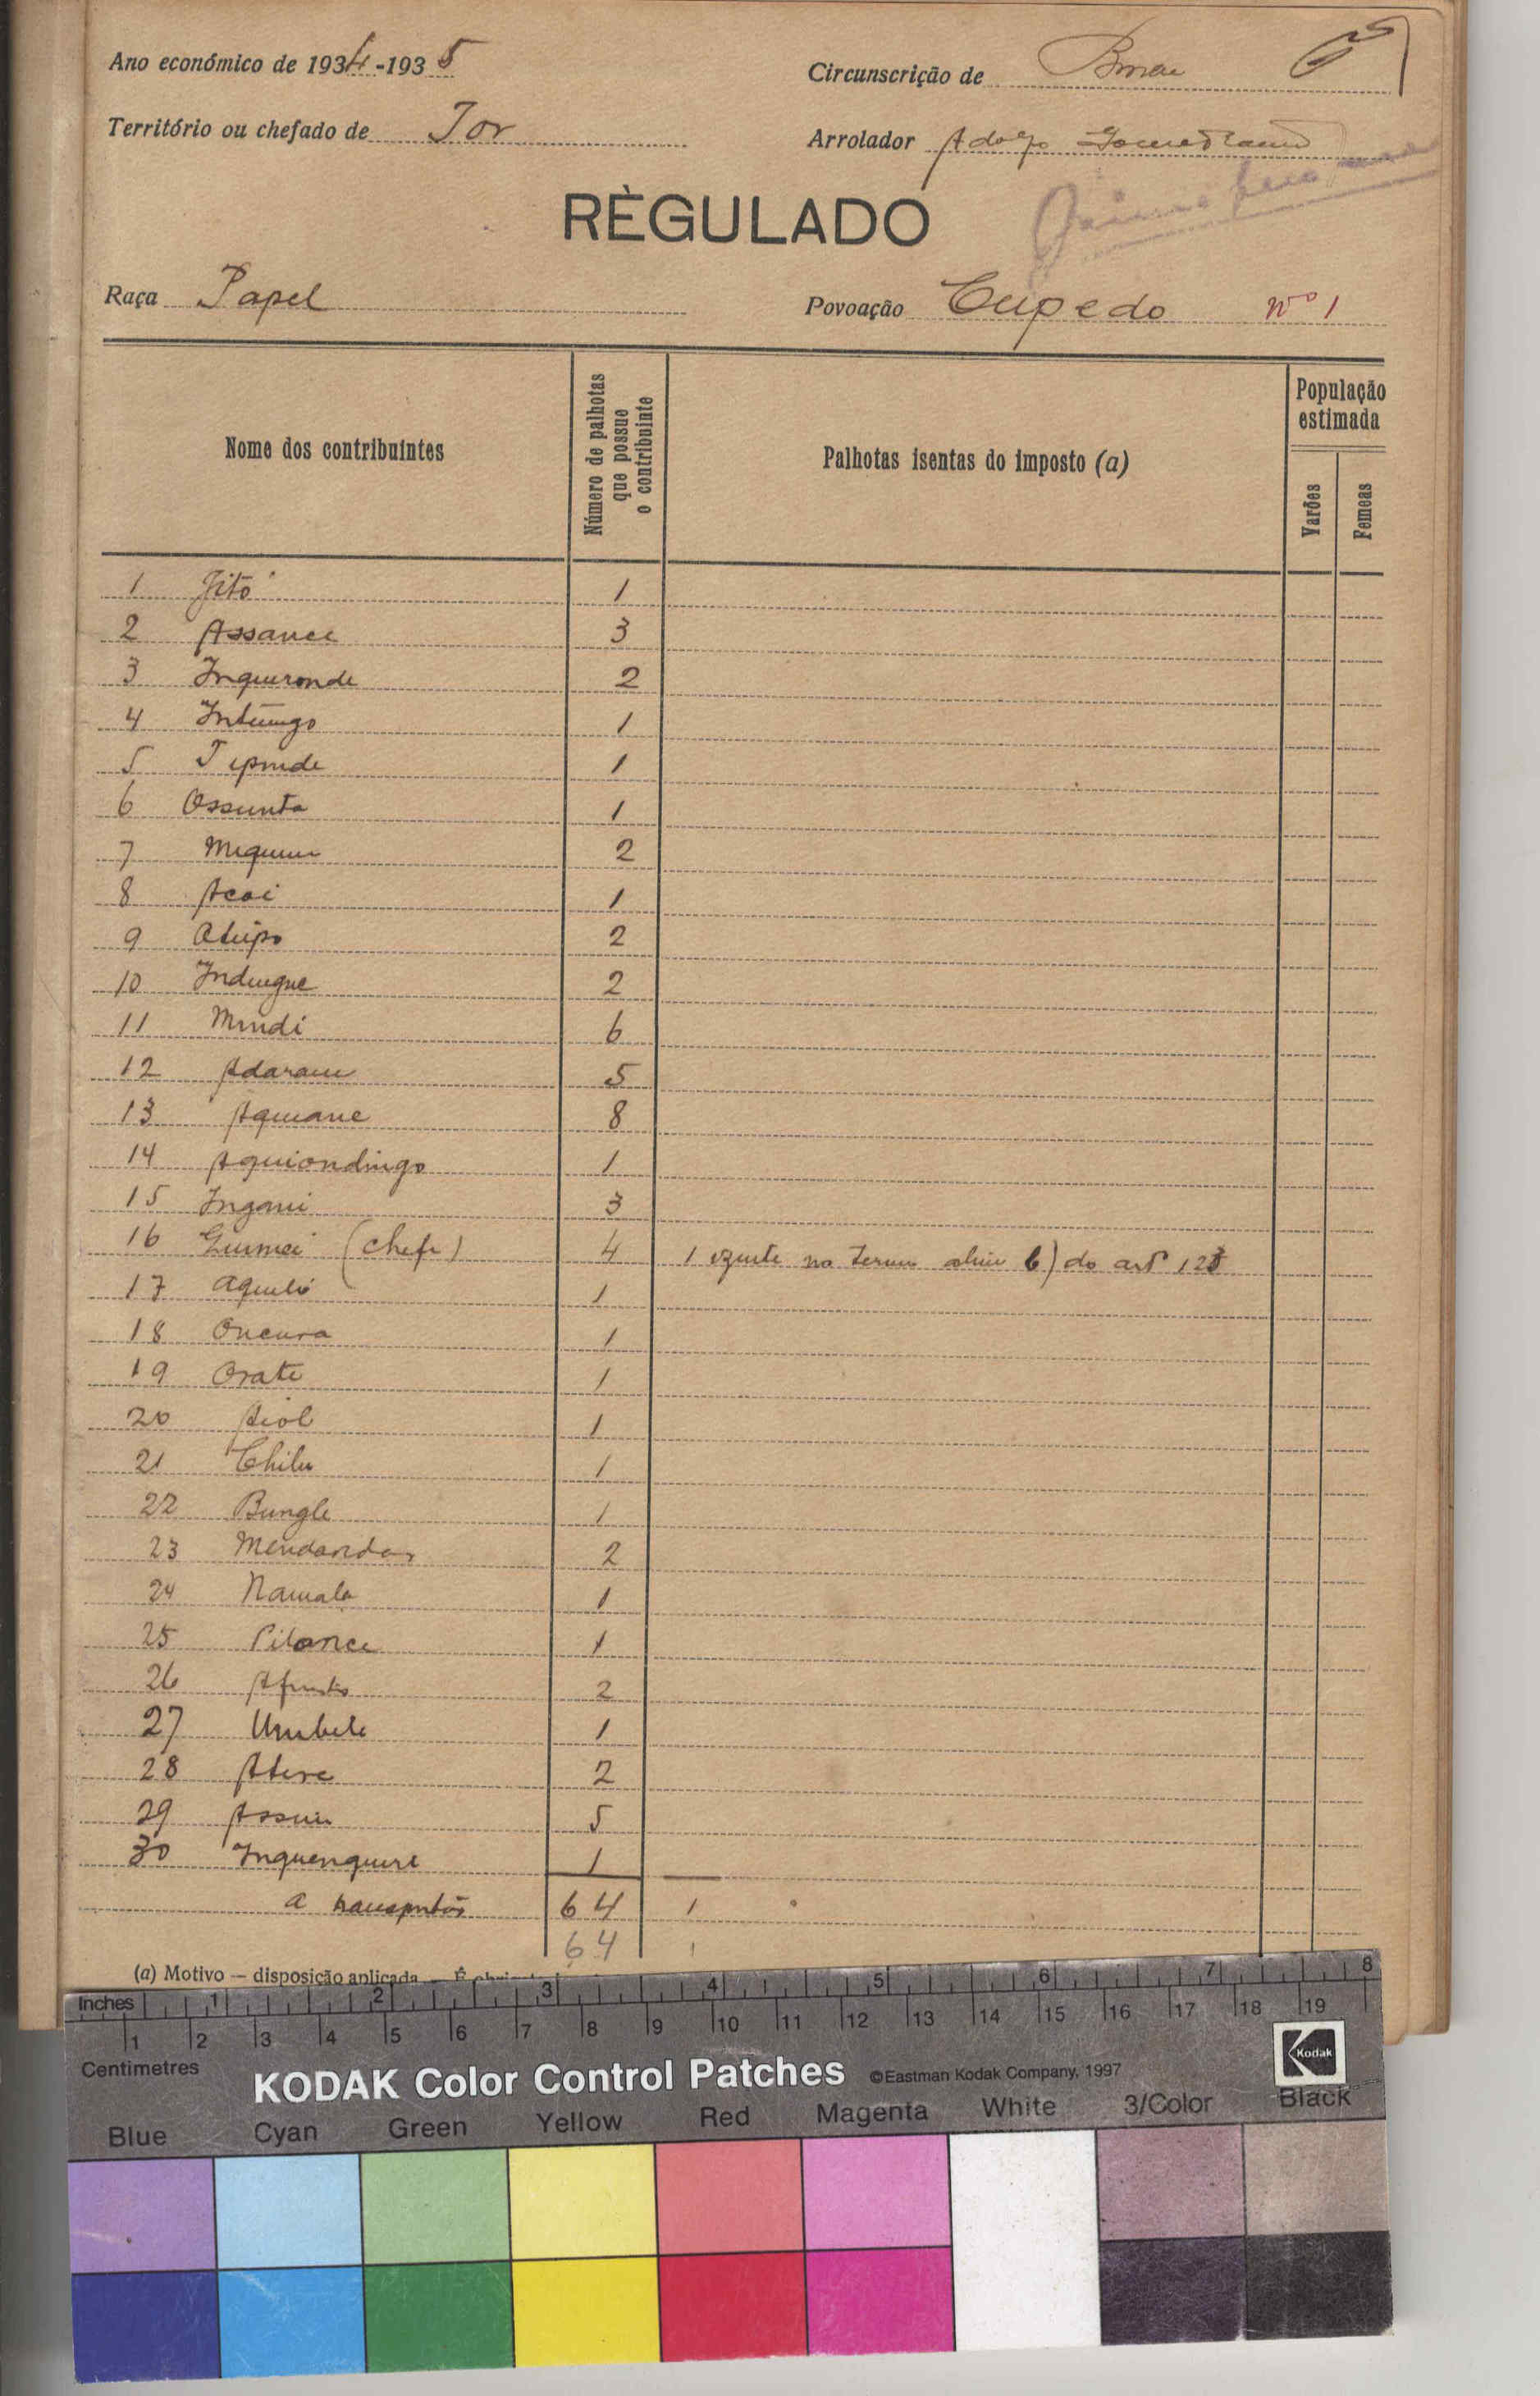 Ano económico de 1934-1935
Circunscrição de
Território ou chefado de Tor
Arrolador Adolfo
REGULADO
Raça Papel
Povoação Cupedo nº 1
Nome dos contribuintes
Número de palhotas que possue o contribuinte
Palhotas isentas do imposto (a)
População estimada
Varões
Femeas
1 Jitó 1
2 Assance 3
3 Inquironde 2
4 Intungo 1
5 1
6 Ossunto 1
7 2
8 Acai 1
9 Atupo 2
10 Indugue 2
11 Mindi 6
12 Adaram 5
13 Aquiane 8
14 Aquiondingo 1
15 Ingani 3
16 (chefe) 4 1 no alinea b) do artº 123
17 1
18 Oncura 1
19 Orate 1
20 Aiol 1
21 1
22 Bungle 1
23 2
24 Namala 1
25 Pilance 1
26 2
27 Umbele 1
28 Atere 2
29 5
30 Inquenquire 1
a transportar 64 1
64 1
(a) Motivo — disposição aplicada. — É
Inches 1 2 3 4 5 6 7 8
1 2 3 4 5 6 7 8 9 10 11 12 13 14 15 16 17 18 19
Centimetres
KODAK Color Control Patches ©Eastman Kodak Company, 1997
Kodak
Blue Cyan Green Yellow Red Magenta White 3/Color Black